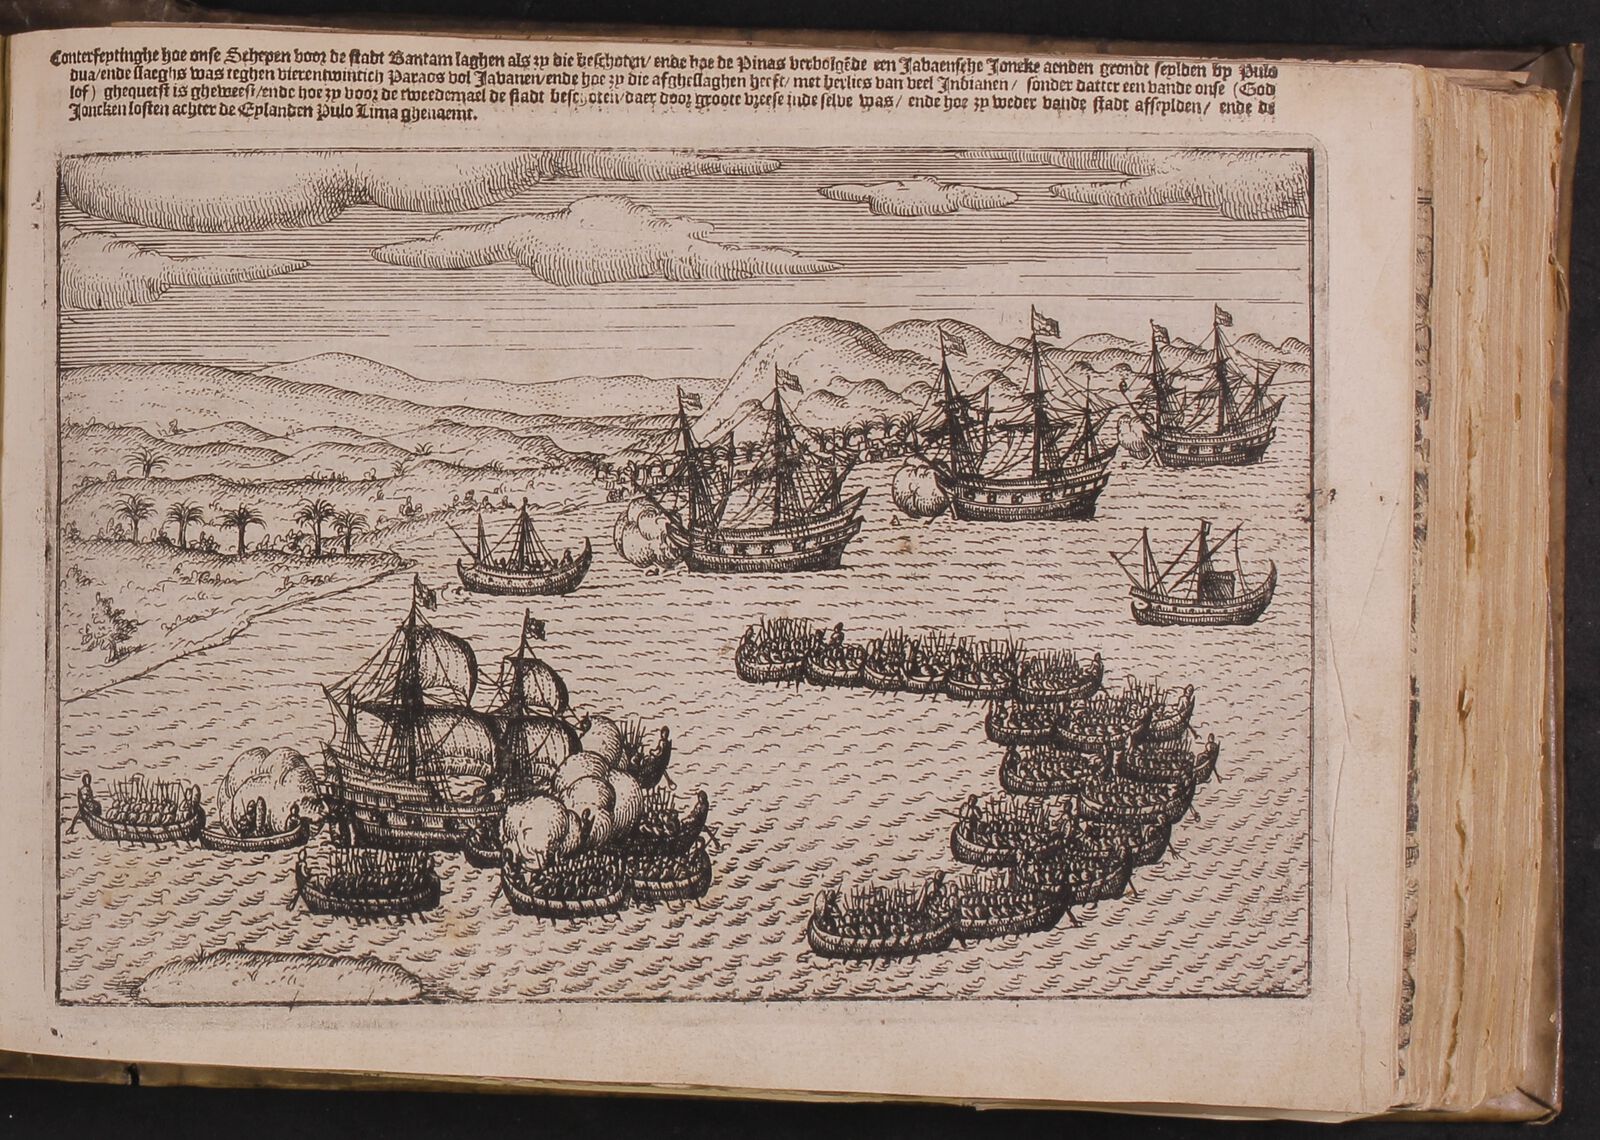 Conterfeytinghe hoe onse Schepen voor de stadt Bantam laghen als zy die beschoten/ ende hoe de Pinas vervolgēde een Javaensche Joncke aenden grondt seylden by Pulo
dua/ ende slaeghs was teghen vierentwintich Paraos vol Javanen/ ende hoe zy die afgheslaghen heeft/ met verlies van veel Indianen/ sonder datter een vande onse (God
lof) ghequetst is gheweest/ ende hoe zy voor de tweedemael de stadt beschoten/ daer door groote vreese inde selve was/ ende hoe zy weder vande stadt afseylden/ ende de
Joncken losten achter de Eylanden Pulo Lima ghenaemt.